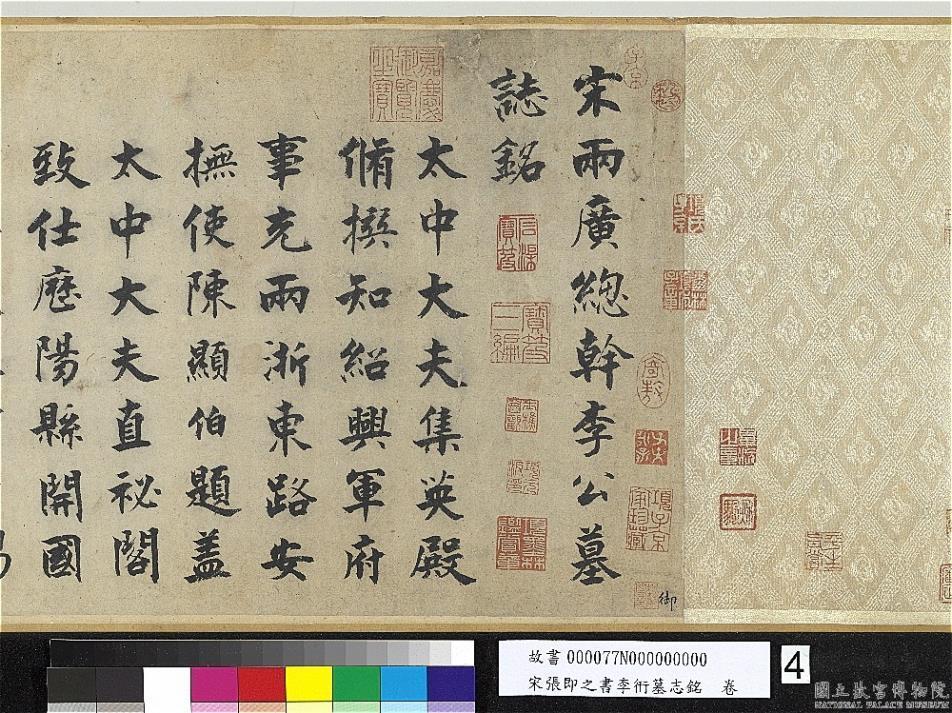 宋兩廣總幹李公墓
誌銘
太中大夫集英殿
脩撰知紹興軍府
事充兩浙東路安
撫使陳顯伯題盖
太中大夫直祕閣
致仕歷陽縣開國
嘉慶御覽之寶
御
故書 000077N000000000
宋張即之書李衎墓志銘 卷
4
國立故宮博物院
NATIONAL PALACE MUSEUM